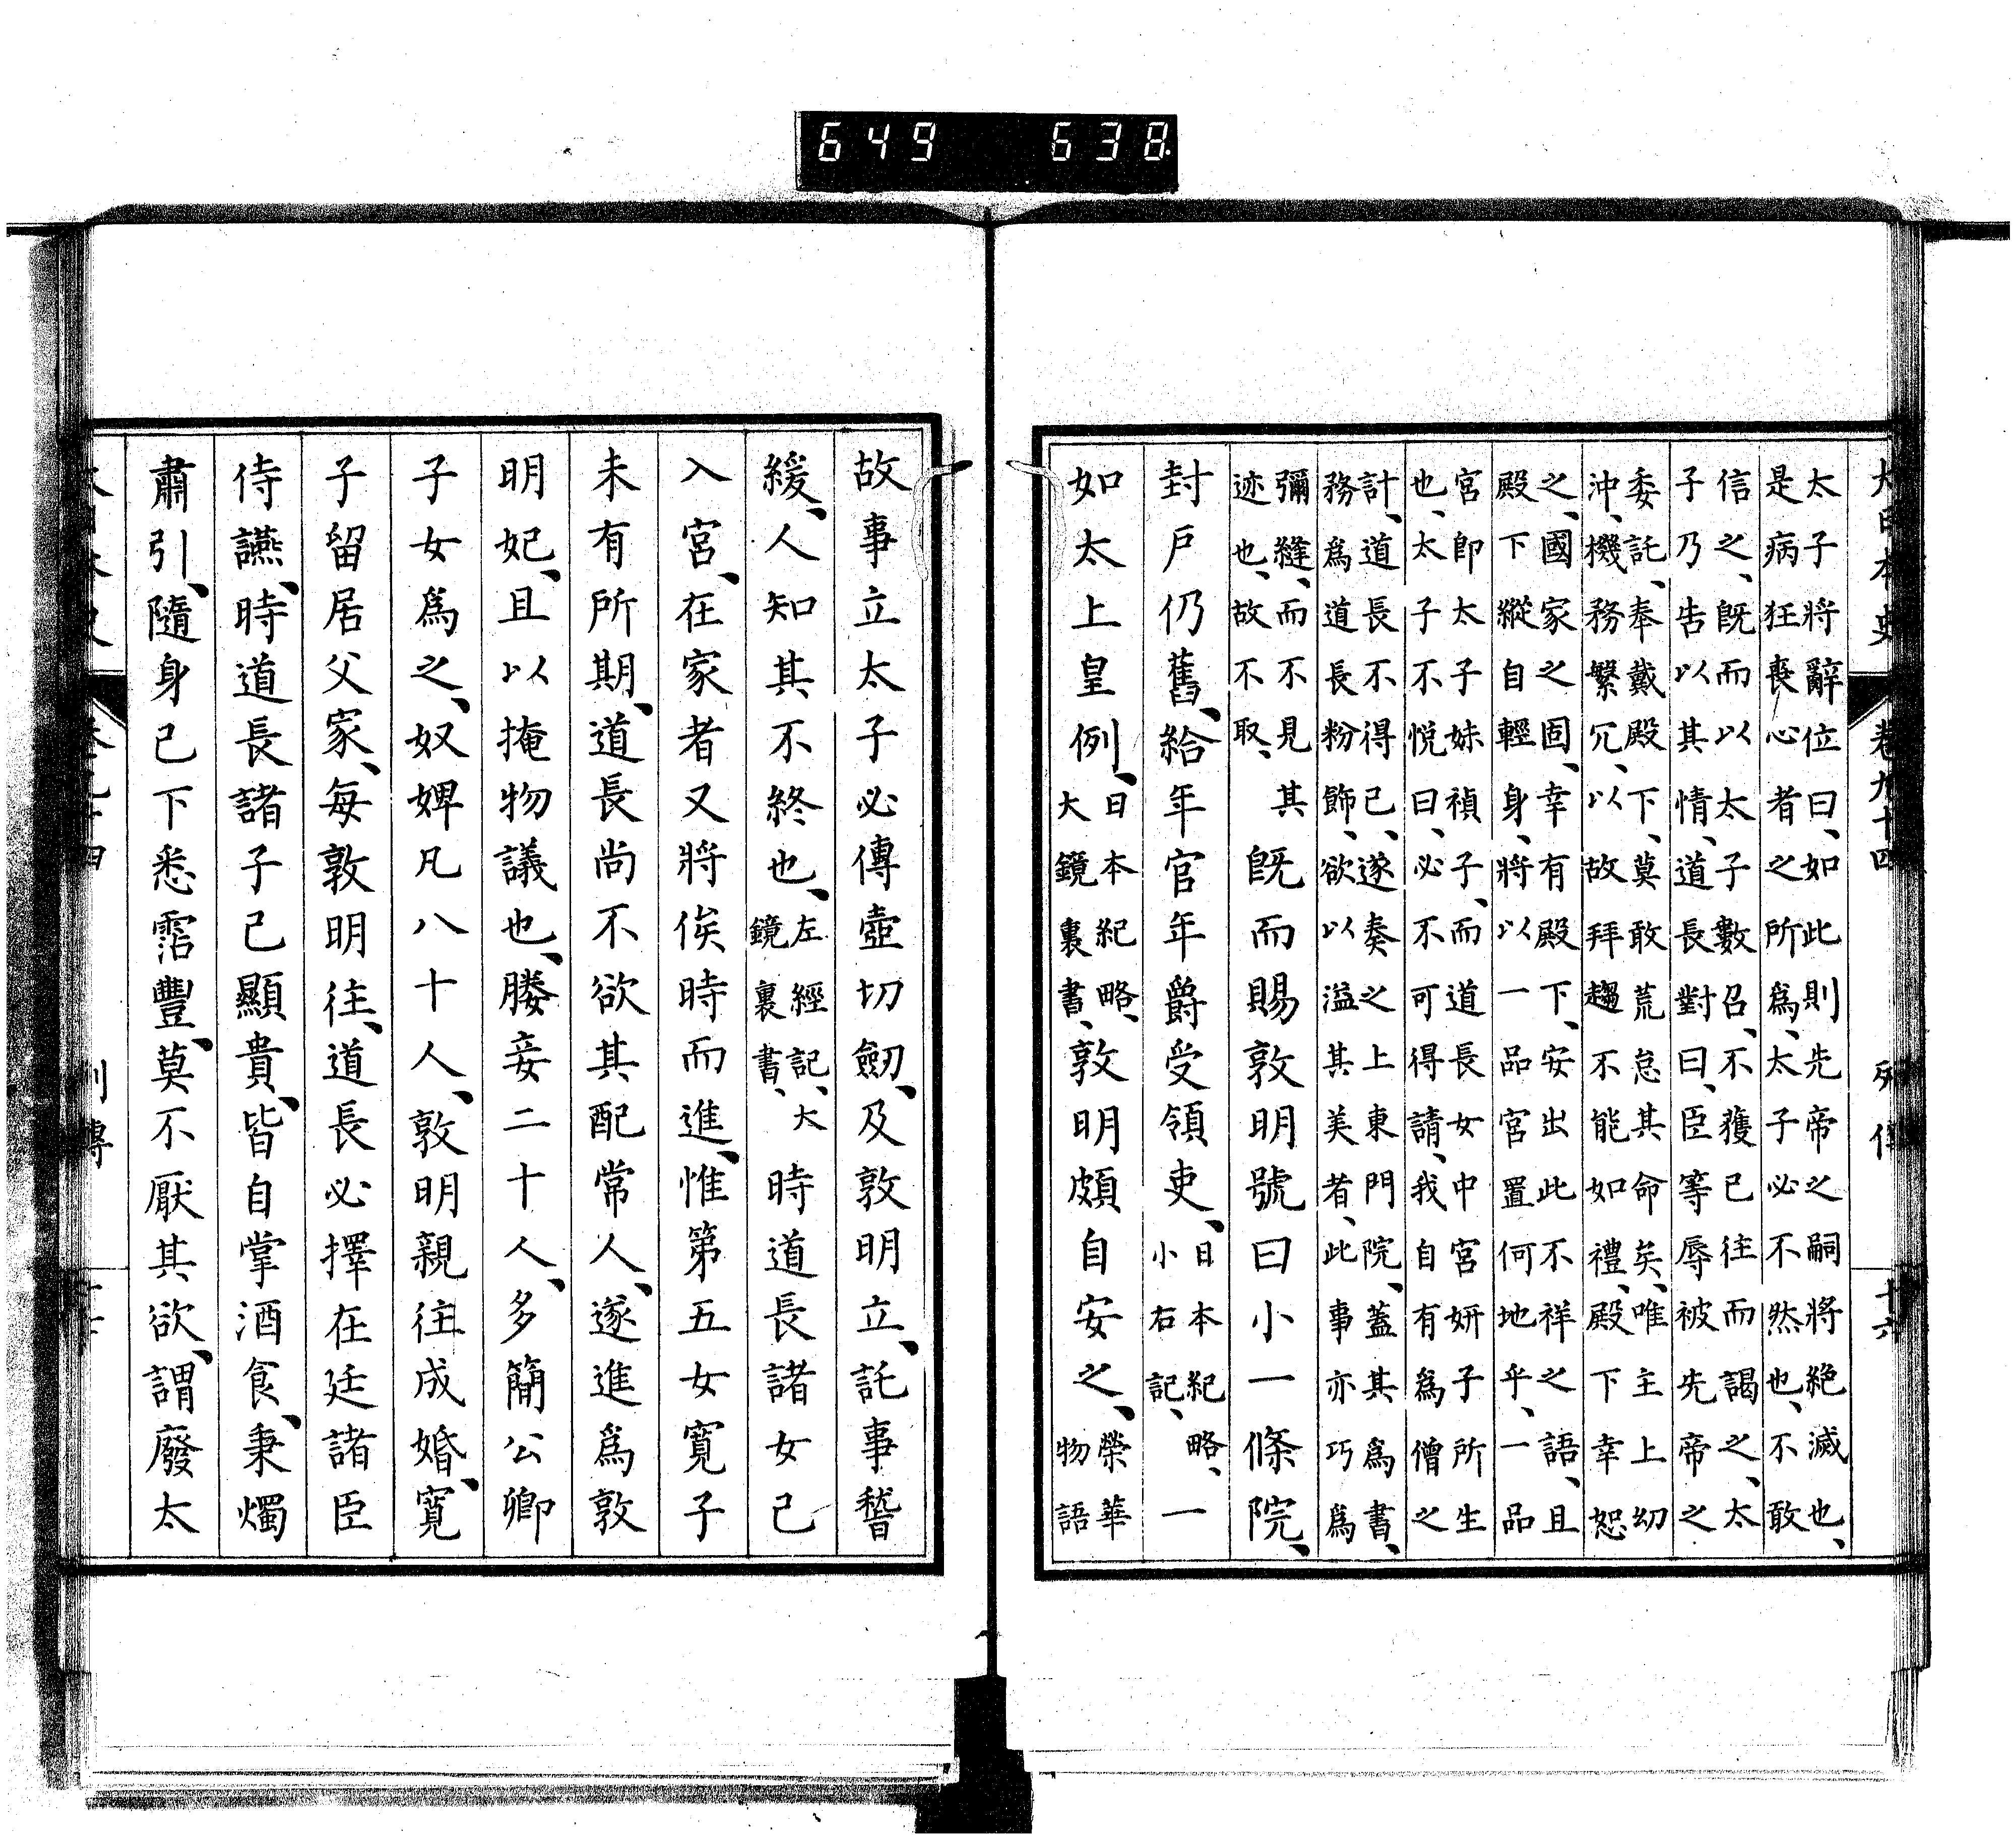 大日本史 卷九十四 列傳 十六
太子將辭位曰、如此則先帝之嗣將絶滅也、
是病狂喪心者之所爲、太子必不然也、不敢
信之、既而以太子數召、不獲已往而謁之、太
子乃告以其情、道長對曰、臣等辱被先帝之
委託、奉戴殿下、莫敢荒怠其命矣、唯主上幼
沖、機務繁冗、以故拜趨不能如禮、殿下幸恕
之、國家之固、幸有殿下、安出此不祥之語、且
殿下縱自輕身、將以一品宮置何地乎、一品
宮卽太子妹禎子、而道長女中宮妍子所生
也、太子不悦曰、必不可得請、我自有爲僧之
計、道長不得已、遂奏之上東門院、蓋其爲書、
務爲道長粉飾、欲以溢其美者、此事亦巧爲
彌縫、而不見其迹也、故不取、既而賜敦明號曰小一條院、
封戸仍舊、給年官年爵受領吏、日本紀略、小右記、一
如太上皇例、日本紀略、大鏡裏書、敦明頗自安之、榮華物語
故事立太子必傳壺切劒、及敦明立、託事稽
緩、人知其不終也、左經記、大鏡裏書、時道長諸女已
入宮、在家者又將俟時而進、惟第五女寬子
未有所期、道長尚不欲其配常人、遂進爲敦
明妃、且以掩物議也、媵妾二十人、多簡公卿
子女爲之、奴婢凡八十人、敦明親往成婚、寬
子留居父家、每敦明往、道長必擇在廷諸臣
侍讌、時道長諸子已顯貴、皆自掌酒食、秉燭
肅引、隨身已下悉霑豐、莫不厭其欲、謂廢太